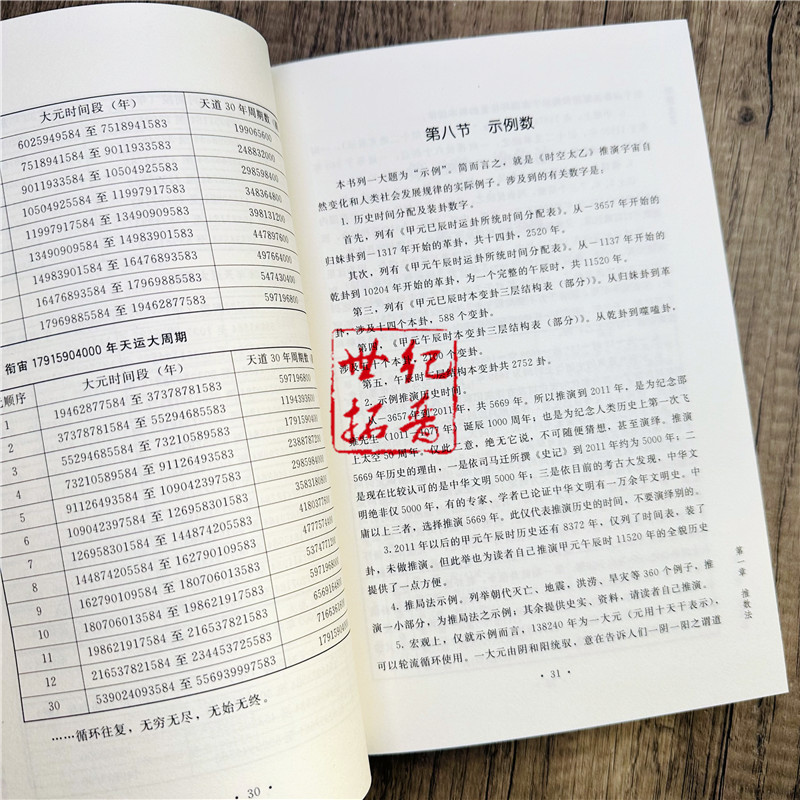 大元时间段（年） 天道30年周期数
6025949584 至 7518941583 199065600
7518941584 至 9011933583 248832000
9011933584 至 10504925583 298598400
10504925584 至 11997917583 348364800
11997917584 至 13490909583 398131200
13490909584 至 14983901583 447897600
14983901584 至 16476893583 497664000
16476893584 至 17969885583 547430400
17969885584 至 19462877583 597196800
衔宙17915904000年天运大周期
元顺序 大元时间段（年） 天道30年周期数
1 19462877584 至 37378781583 597196800
2 37378781584 至 55294685583 1194393600
3 55294685584 至 73210589583 1791590400
4 73210589584 至 91126493583 2388787200
5 91126493584 至 109042397583 2985984000
6 109042397584 至 126958301583 3583180800
7 126958301584 至 144874205583 4180377600
8 144874205584 至 162790109583 4777574400
9 162790109584 至 180706013583 5374771200
10 180706013584 至 198621917583 5971968000
11 198621917584 至 216537821583 6569164800
12 216537821584 至 234453725583 7166361600
30 539024093584 至 556939997583 17915904000
……循环往复，无穷无尽，无始无终。
· 30 ·
第八节 示例数
本书列一大题为“示例”。简而言之，就是《时空太乙》推演宇宙自
然变化和人类社会发展规律的实际例子。涉及到的有关数字是：
1. 历史时间分配及装卦数字。
首先，列有《甲元巳辰时运卦所统时间分配表》。从-3657年开始的
归妹卦到-1317年开始的革卦，共十四卦，2520年。
其次，列有《甲元午辰时运卦所统时间分配表》。从-1137年开始的
乾卦到10204年开始的革卦，为一个完整的午辰时，共11520年。
第三，列有《甲元巳辰时本变卦三层结构表（部分）》。从归妹卦到革
卦，涉及十四个本卦，588个变卦。
第四，《甲元午辰时本变卦三层结构表（部分）》。从乾卦到噬嗑卦，
涉及五十个本卦，2100个变卦。
第五，午辰时三层结构本变卦共2752卦。
2. 示例推演历史时间。
从-3657年到2011年，共5669年。所以推演到2011年，是为纪念邵
雍先生（1011—1077年）诞辰1000周年；也是为纪念人类历史上第一次飞
上太空50周年。仅此二意，绝无它说，不可随便猜想，甚至演绎。推演
5669年历史的理由，一是依司马迁所撰《史记》到2011年约为5000年；二
是现在比较认可的是中华文明5000年；三是依目前的考古大发现，中华文
明绝非仅5000年，有的专家、学者已论证中华文明有一万余年文明史。中
庸以上三者，选择推演5669年。此仅代表推演历史的时间，不要演绎别的。
3. 2011年以后的甲元午辰时历史还有8372年，仅列了时间表，装了
卦，未做推演。但此举也为读者自己推演甲元午辰时11520年的全貌历史
提供了一点方便。
4. 推局法示例。列举朝代灭亡、地震，洪涝、旱灾等360个例子，推
演一小部分，为推局法之示例，其余提供史实、资料，请读者自己推演。
5. 宏观上，仅就示例而言，138240年为一大元（元用十天干表示），
可以轮流循环使用。一大元由阴和阳统驭，意在告诉人们一阴一阳之谓道
· 31 ·
第一章 推数法
世纪
拓普